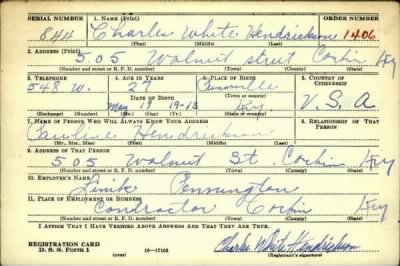 SERIAL NUMBER 1. NAME (Print) ORDER NUMBER
844 Charles White Hendrickson 1406
(First) (Middle) (Last)
2. ADDRESS (Print)
505 Walnut street Corbin Ky
(Number and street or R. F. D. number) (Town) (County) (State)
3. TELEPHONE 4. AGE IN YEARS 5. PLACE OF BIRTH 6. COUNTRY OF CITIZENSHIP
548 W. 27
DATE OF BIRTH (Town or county)
May 19 1913 Ky. U. S. A
(Exchange) (Number) (Mo.) (Day) (Yr.) (State or country)
7. NAME OF PERSON WHO WILL ALWAYS KNOW YOUR ADDRESS 8. RELATIONSHIP OF THAT PERSON
Pauline Hendrickson
(Mr., Mrs., Miss) (First) (Middle) (Last)
9. ADDRESS OF THAT PERSON
505 Walnut St. Corbin Ky
(Number and street or R. F. D. number) (Town) (County) (State)
10. EMPLOYER'S NAME
Pennington
11. PLACE OF EMPLOYMENT OR BUSINESS
Contractor Corbin Ky
(Number and street or R. F. D. number) (Town) (County) (State)
I AFFIRM THAT I HAVE VERIFIED ABOVE ANSWERS AND THAT THEY ARE TRUE.
REGISTRATION CARD
D. S. S. Form 1 16—17105 Charles White Hendrickson
(over) (Registrant's signature)